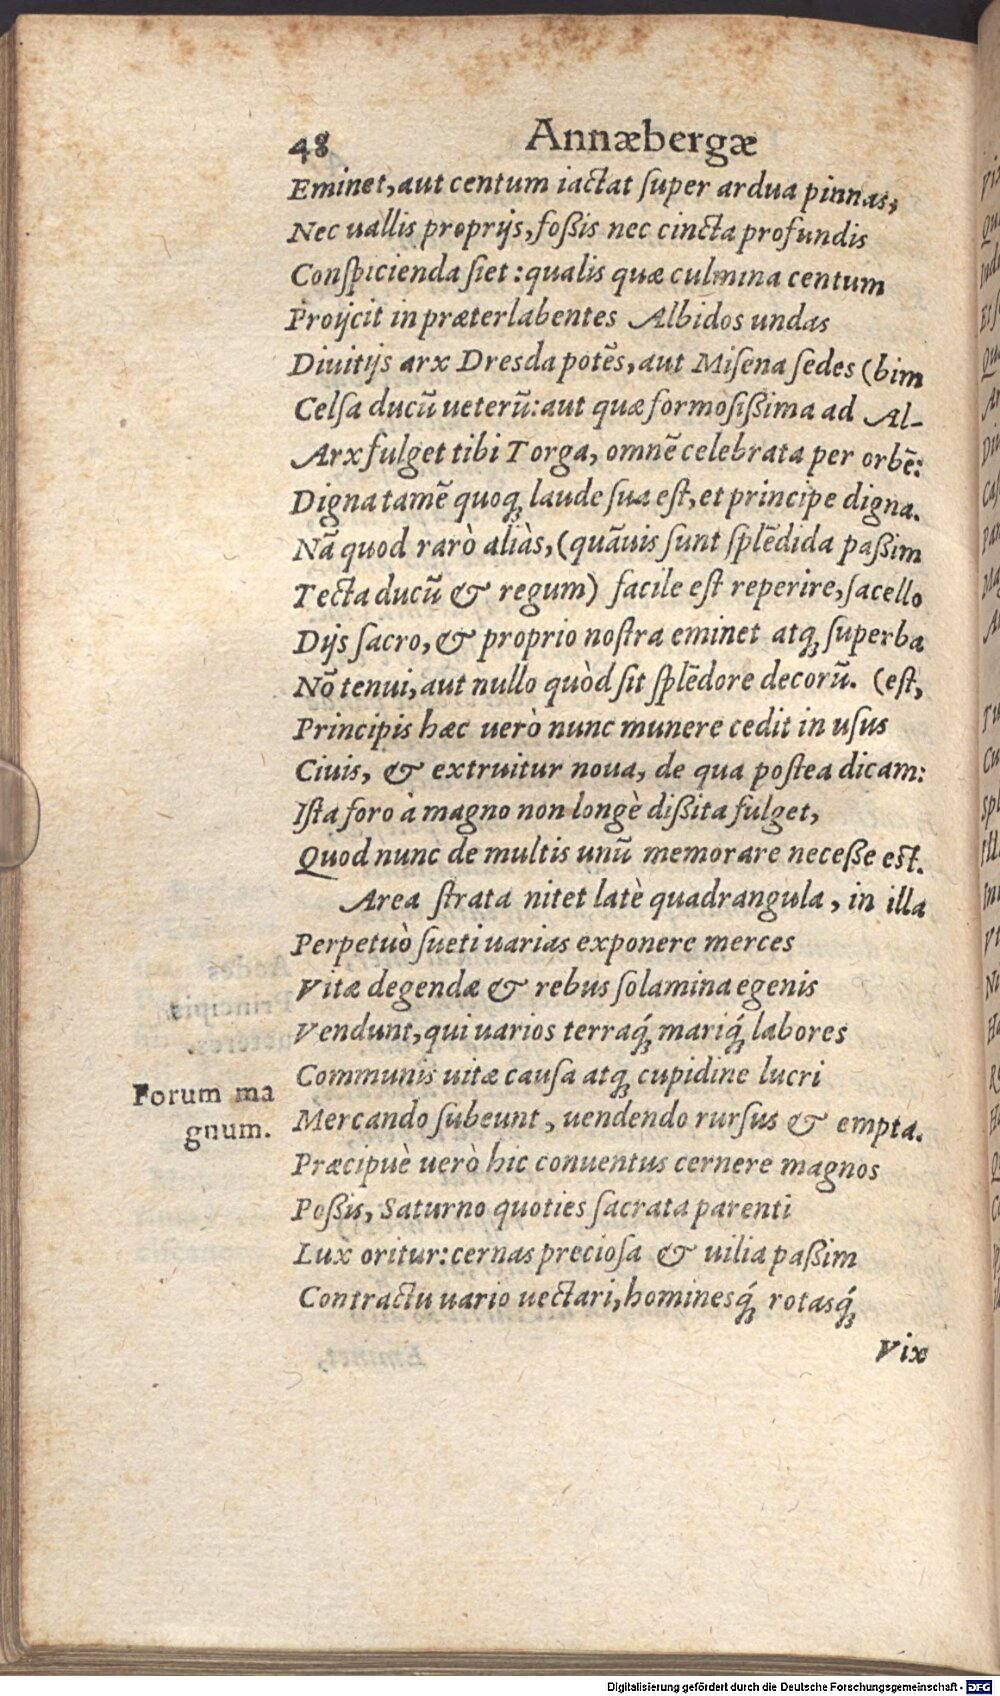 48 Annæbergæ
Eminet, aut centum iactat ſuper ardua pinnas,
Nec uallis proprijs, foßis nec cincta profundis
Conſpicienda ſiet: qualis quæ culmina centum
Proijcit in præterlabentes Albidos undas
Diuitijs arx Dresda potẽs, aut Miſena ſedes (bim
Celſa ducũ ueterũ: aut quæ formoſißima ad Al-
Arx fulget tibi Torga, omnẽ celebrata per orbẽ:
Digna tamẽ quoq; laude ſua eſt, et principe digna.
Nã quod rarò aliàs, (quãuis ſunt ſplẽdida paßim
Tecta ducũ & regum) facile eſt reperire, ſacello
Dijs ſacro, & proprio noſtra eminet atq; ſuperba
Nõ tenui, aut nullo quòd ſit ſplẽdore decorũ. (eſt,
Principis hæc uerò nunc munere cedit in uſus
Ciuis, & extruitur noua, de qua poſtea dicam:
Iſta foro à magno non longè dißita fulget,
Quod nunc de multis unũ memorare neceße eſt.
Area ſtrata nitet latè quadrangula, in illa
Perpetuò ſueti uarias exponere merces
Vitæ degendæ & rebus ſolamina egenis
Vendunt, qui uarios terraq́; mariq́; labores
Communis uitæ cauſa atq; cupidine lucri
Forum ma
gnum.
Mercando ſubeunt, uendendo rurſus & empta.
Præcipuè uerò hic conuentus cernere magnos
Poßis, Saturno quoties ſacrata parenti
Lux oritur: cernas precioſa & uilia paßim
Contractu uario uectari, hominesq́; rotasq́;
Vix
Digitalisierung gefördert durch die Deutsche Forschungsgemeinschaft - DFG